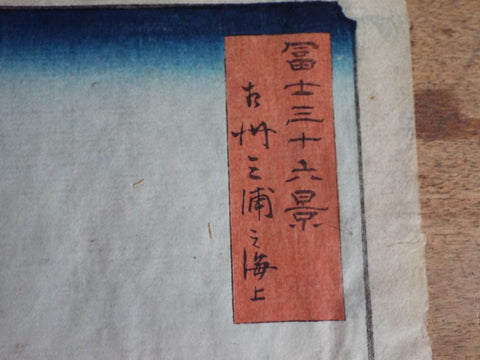 冨士三十六景
相州三浦之海上